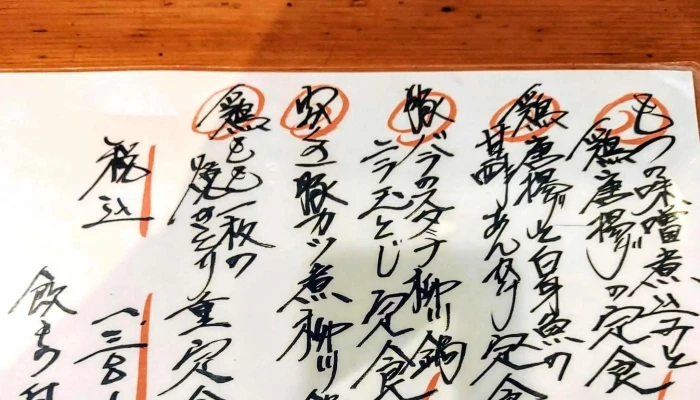 もつの味噌煮込みと
鶏唐揚げの定食
鶏唐揚げと白身魚の
甘酢あんかけ定食
豚バラのスタミナ柳川鍋
ニラ玉とじ定食
豚カツ煮柳川
鶏もも一枚の
焼きとり重定食
税込
飲み